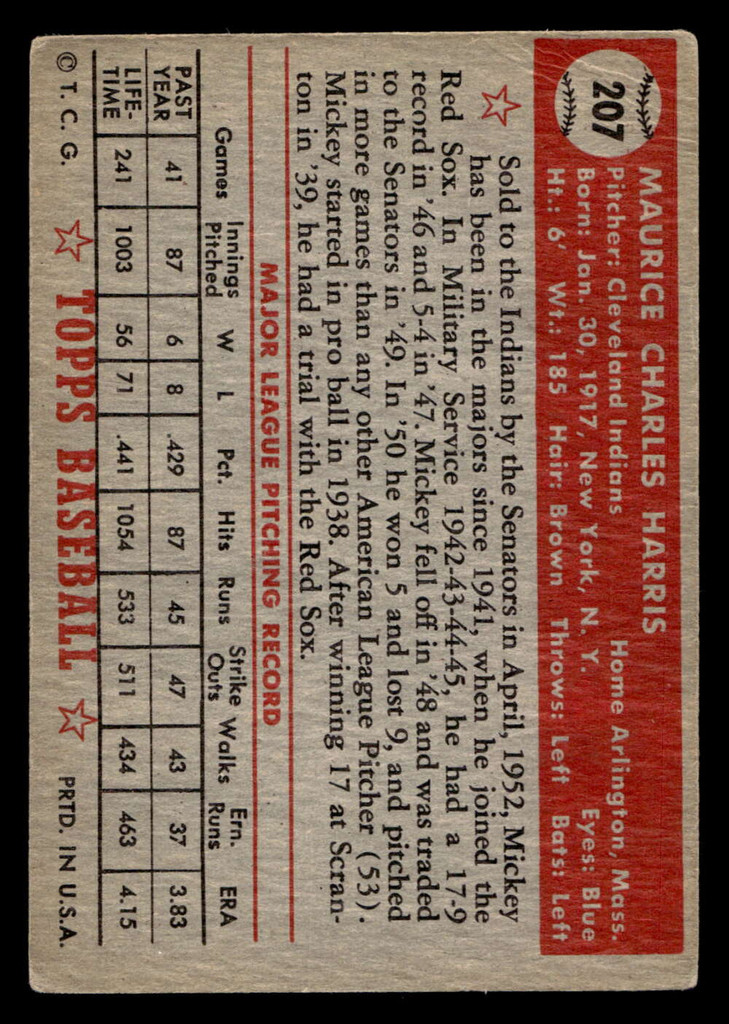 207
MAURICE CHARLES HARRIS
Pitcher: Cleveland Indians Home Arlington, Mass.
Born: Jan. 30, 1917, New York, N. Y. Eyes: Blue
Ht.: 6' Wt.: 185 Hair: Brown Throws: Left Bats: Left
Sold to the Indians by the Senators in April, 1952, Mickey
has been in the majors since 1941, when he joined the
Red Sox. In Military Service 1942-43-44-45, he had a 17-9
record in '46 and 5-4 in '47. Mickey fell off in '48 and was traded
to the Senators in '49. In '50 he won 5 and lost 9, and pitched
in more games than any other American League Pitcher (53).
Mickey started in pro ball in 1938. After winning 17 at Scran-
ton in '39, he had a trial with the Red Sox.
MAJOR LEAGUE PITCHING RECORD
Games Innings Pitched W L Pct. Hits Runs Strike Outs Walks Ern. Runs ERA
PAST YEAR 41 87 6 8 .429 87 45 47 43 37 3.83
LIFE-TIME 241 1003 56 71 .441 1054 533 511 434 463 4.15
© T. C. G. TOPPS BASEBALL PRTD. IN U.S.A.